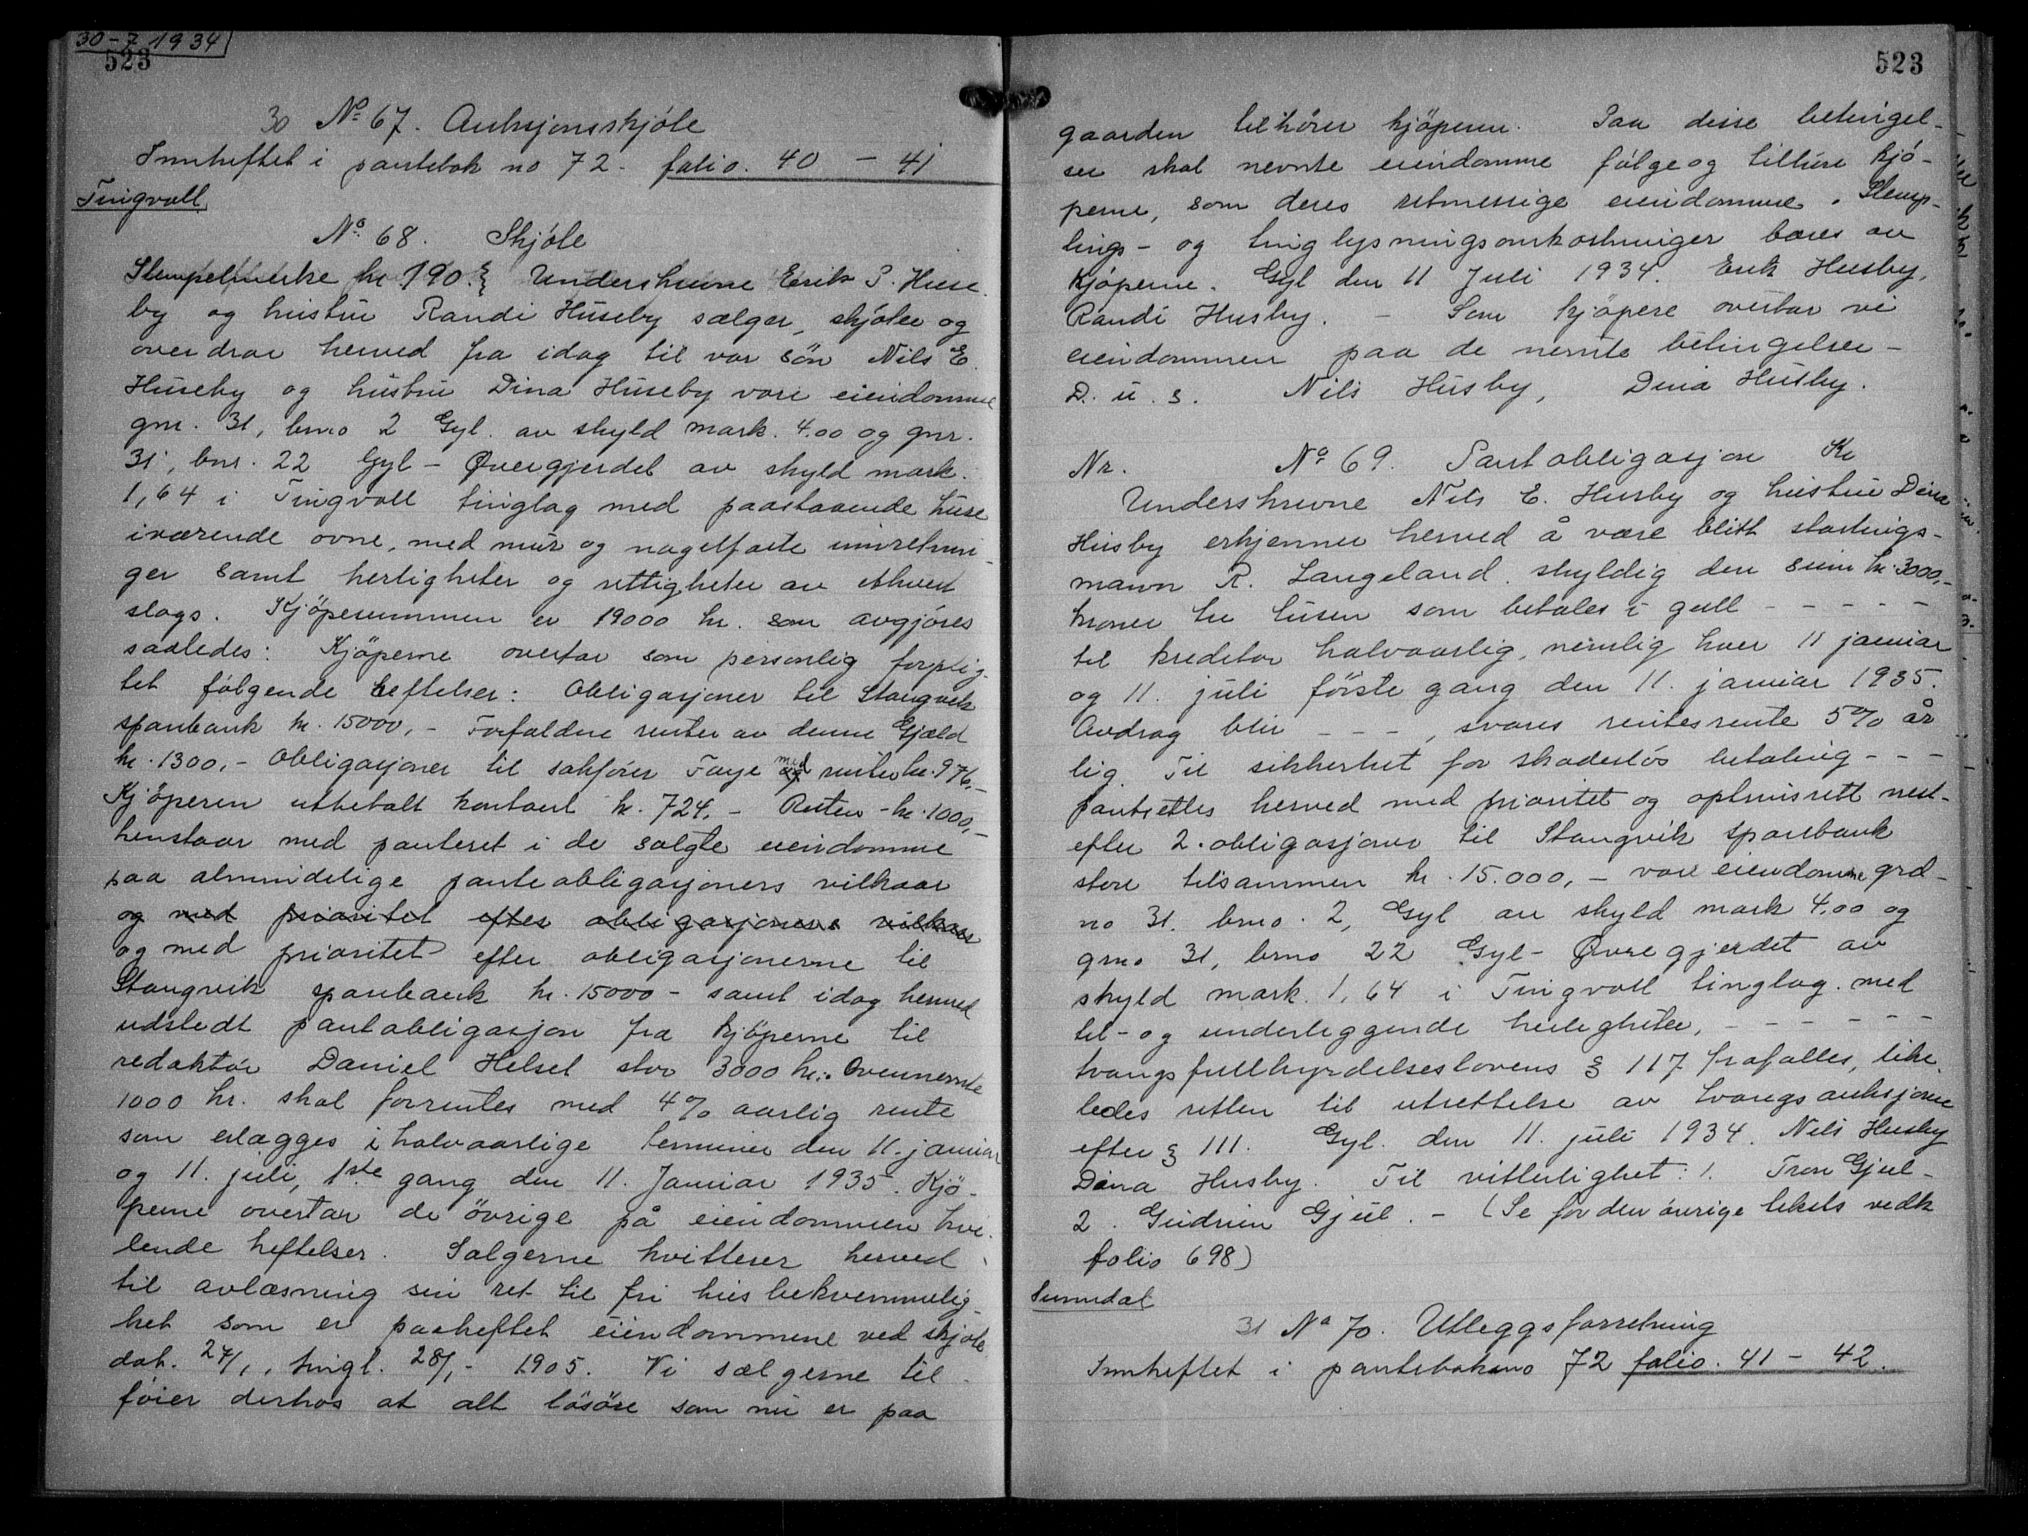 30-7 1934
523
30 No 67. Auksjonsskjöte
Innheftet i pantebok no 72. folio. 40 - 41
Tingvoll
No 68. Skjöte
Stempelmerke kr 190.- Underskrevne Erik P. Huse
by og hustru Randi Huseby sælger, skjöter og
overdrar herved fra idag til vor sön Nils E.
Huseby og hustru Dina Huseby vore eiendomme
gnr. 31, brno 2 Gyl. av skyld mark. 4.00 og gnr.
31, bnr. 22 Gyl - Øvregjerdet av skyld mark.
1,64 i Tingvoll tinglag med paastaaende huse
iværende ovne, med mur og nagelfaste innretnin
ger samt herligheter og rettigheter av ethvert
slags. Kjöpesummen er 19000 kr. som avgjöres
saaledes: Kjöperne overtar som personlig forplig-
tet fölgende heftelser: Obligasjoner til Stangvik
sparebank kr. 15000,- Forfaldne renter av denne Gjæld
kr. 1300,- Obligasjoner til sakförer Faye med renter kr. 976,-
Kjöperen utbetalt kontant kr. 724,- Resten - kr. 1000,-
henstaar med panteret i de solgte eiendomme
paa almindelige panteobligasjoners vilkaar
og med prioritet efter obligasjoners vilkaar
og med prioritet efter obligasjonerne til
Stangvik sparebank kr. 15000 - samt idag herved
udstedt pantobligasjon fra kjöperne til
redaktör Daniel Helset stor 3000 kr. Ovennevnte
1000 kr. skal forrentes med 4% aarlig rente
som erlægges i halvaarlige terminer den 11. januar
og 11. juli, 1ste gang den 11. Januar 1935. Kjö-
perne overtar de övrige på eiendommen hvi-
lende heftelser. Sælgerne kvitterer herved
til avlæsning sin ret til fri husbekvemmelig-
het som er paaheftet eiendommene ved skjöte
dat. 27/1, tingl. 28/1 - 1905. Vi sælgerne til-
föier derhos at alt lösöre som nu er paa
523
gaarden tilhörer kjöperne. Paa disse betingel-
ser skal nevnte eiendomme fölge og tilhöre kjö-
perne, som deres retmessige eiendomme. Stemp-
lings- og tinglysningsomkostninger bæres av
kjöperne. Gyl den 11 Juli 1934. Erik Husby,
Randi Husby. - Som kjöpere overtar vi
eiendommen paa de nevnte betingelser -
D. u. s. Nils Husby, Dina Husby.
Nr. No 69. Pantobligasjon Kr
Underskrevne Nils E. Husby og hustru Dina
Husby erkjenner herved å være blitt stortings-
mann R. Langeland skyldig den sum kr. 3000,-
kroner tre tusen som betales i gull - - - - -
til kreditor halvaarlig, nemlig hver 11 januar
og 11. juli förste gang den 11. januar 1935.
Avdrag blir - - - , svares rentesrente 5% år
lig. Til sikkerhet for skadeslös betaling - - -
pantsettes herved med prioritet og optrinsrett nest-
efter 2. obligasjoner til Stangvik sparebank
store tilsammen kr. 15.000,- vore eiendomme grd-
no 31. brno. 2, Gyl av skyld mark 4,00 og
grno 31, brno 22 Gyl - Øvregjerdet av
skyld mark. 1,64 i Tingvoll tinglag. med
til- og underliggende herligheter, - - - - - -
tvangsfullbyrdelseslovens § 117 frafalles, like-
ledes retten til utsettelse av tvangsauksjone
efter § 111. Gyl. den 11. juli 1934. Nils Husby
Dina Husby. Til vitterlighet: 1. Tron Gjul-
2. Gudrun Gjul. - (Se for den övrige tekets vedk
folio 698)
Sunndal
31 No 70. Utleggsforretning
Innheftet i panteboken no 72 folio. 41 - 42.